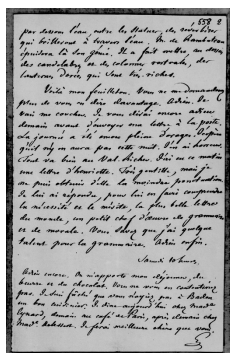 558 2
par dessous l'eau, entre les statues, des réverbères
qui brilleront à travers l'eau. M. de Rambuteau
épuisera là son génie. Il a fait mettre par dessus
des candélabres et des colonnes rostrales, des
lanternes dorées qui sont très riches.
Voilà mon feuilleton. Vous ne me demanderez
plus de vous en dire davantage. Adieu. Je
vais me coucher. Je vous dirai encore
demain avant d'envoyer ma lettre à la poste.
La journée a été moins pleine d'orages. J'espère
qu'il n'y en aura pas cette nuit. J'en ai horreur.
Tout va bien au Val Richer. J'ai eu ce matin
une lettre d'henriette. Très gentille, mais je
ne puis obtenir d'elle la moindre ponctuation.
Je lui ai répondu pour lui en faire comprendre
la nécessité et le mérite la plus belle lettre
du monde, un petit chef d'œuvre de grammaire
et de morale. Vous savez que j'ai quelque
talent pour la grammaire. Adieu enfin.
Samedi 10 heures
Adieu encore. On m'apporte mon déjeuner, du
beurre et du chocolat. Vous ne vous en contenteriez
pas. Je suis fâché que vous n'ayez pas à Baden
un bon cuisinier. Je dîne aujourd'hui chez Mad
Eynard, demain au café de Paris, après demain chez
Mad. Delessert. Je ferai meilleure chère que vous.